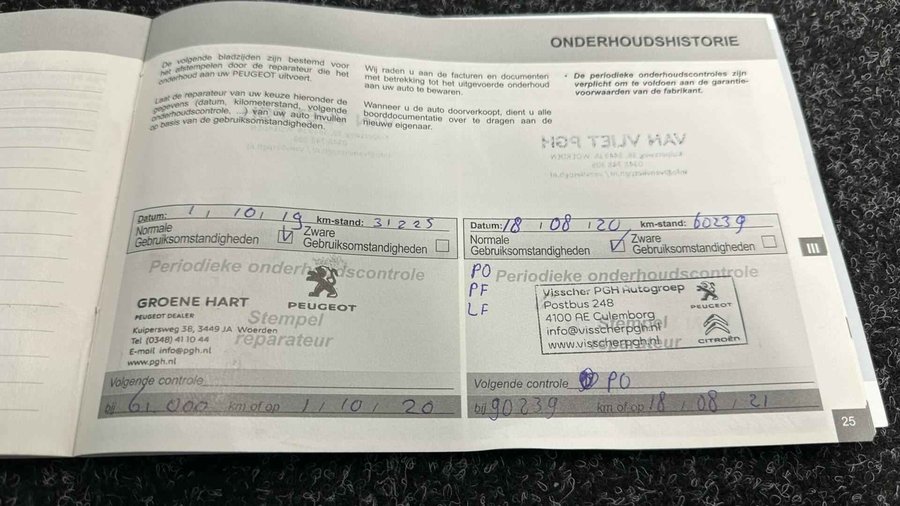 ONDERHOUDSHISTORIE
De volgende bladzijden zijn bestemd voor
het afstempelen door de reparateur die het
onderhoud aan uw PEUGEOT uitvoert.
Laat de reparateur van uw keuze hieronder de
gegevens (datum, kilometerstand, volgende
onderhoudscontrole, ...) van uw auto invullen
op basis van de gebruiksomstandigheden.
Wij raden u aan de facturen en documenten
met betrekking tot het uitgevoerde onderhoud
aan uw auto te bewaren.
Wanneer u de auto doorverkoopt, dient u alle
boorddocumentatie over te dragen aan de
nieuwe eigenaar.
• De periodieke onderhoudscontroles zijn
verplicht om te voldoen aan de garantie-
voorwaarden van de fabrikant.
VAN VLIET PGH
Datum: 1 / 10 / 19 km-stand: 31225
Normale
Gebruiksomstandigheden
Zware
Gebruiksomstandigheden
Periodieke onderhoudscontrole
PEUGEOT
GROENE HART
PEUGEOT DEALER
Stempel
reparateur
Kuipersweg 38, 3449 JA Woerden
Tel (0348) 41 10 44
E-mail info@pgh.nl
www.pgh.nl
Volgende controle
bij 61.000 km of op 1 / 10 / 20
Datum: 18 / 08 / 20 km-stand: 60239
Normale
Gebruiksomstandigheden
Zware
Gebruiksomstandigheden
PO
PF
LF
Periodieke onderhoudscontrole
Visscher PGH Autogroep
Postbus 248
4100 AE Culemborg
info@visscherpgh.nl
www.visscherpgh.nl
PEUGEOT
CITROËN
Stempel
reparateur
Volgende controle PO
bij 90239 km of op 18 / 08 / 21
III
25